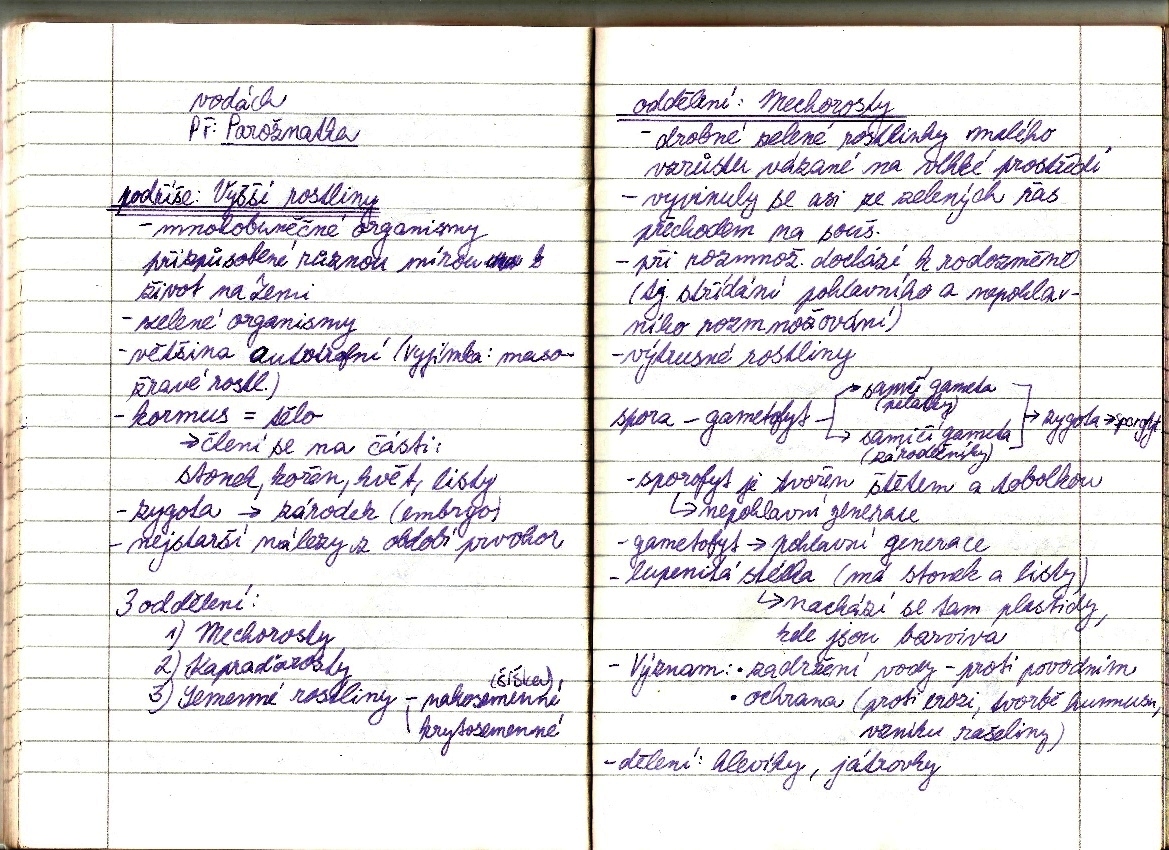 vodách
Př: Parožnatka
podříše: Vyšší rostliny
- mnohobuněčné organismy
přizpůsobené různou mírou k
život na Zemi
- zelené organismy
- většina autotrofní (vyjímka: maso-
žravé rostl.)
- kormus = tělo
→ člení se na části:
stonek, kořen, květ, listy
- zygota → zárodek (embryo)
- nejstarší nálezy z období prvohor
3 oddělení:
1) Mechorosty
2) Kapraďorosty
3) Semenné rostliny - nahosemenné (šiška),
krytosemenné
oddělení: Mechorosty
- drobné zelené rostlinky malého
vzrůstu vázané na vlhké prostředí
- vyvinuly se asi ze zelených řas
přechodem na souš.
- při rozmnož. dochází k rodozměně
(tj. střídání pohlavního a nepohlav-
ního rozmnožování)
- výtrusné rostliny
spora - gametofyt → samčí gameta (pelatky)
→ samičí gameta (zárodečníky) → zygota → sporofyt
- sporofyt je tvořen štětem a tobolkou
↳ nepohlavní generace
- gametofyt → pohlavní generace
- lupenitá stélka (má stonek a listy)
↳ nachází se tam plastidy,
kde jsou barviva
- Význam: • zadržení vody - proti povodním
• ochrana (proti erozi, tvorbě humusu,
vzniku rašeliny)
- dělení: hlevíky, játrovky